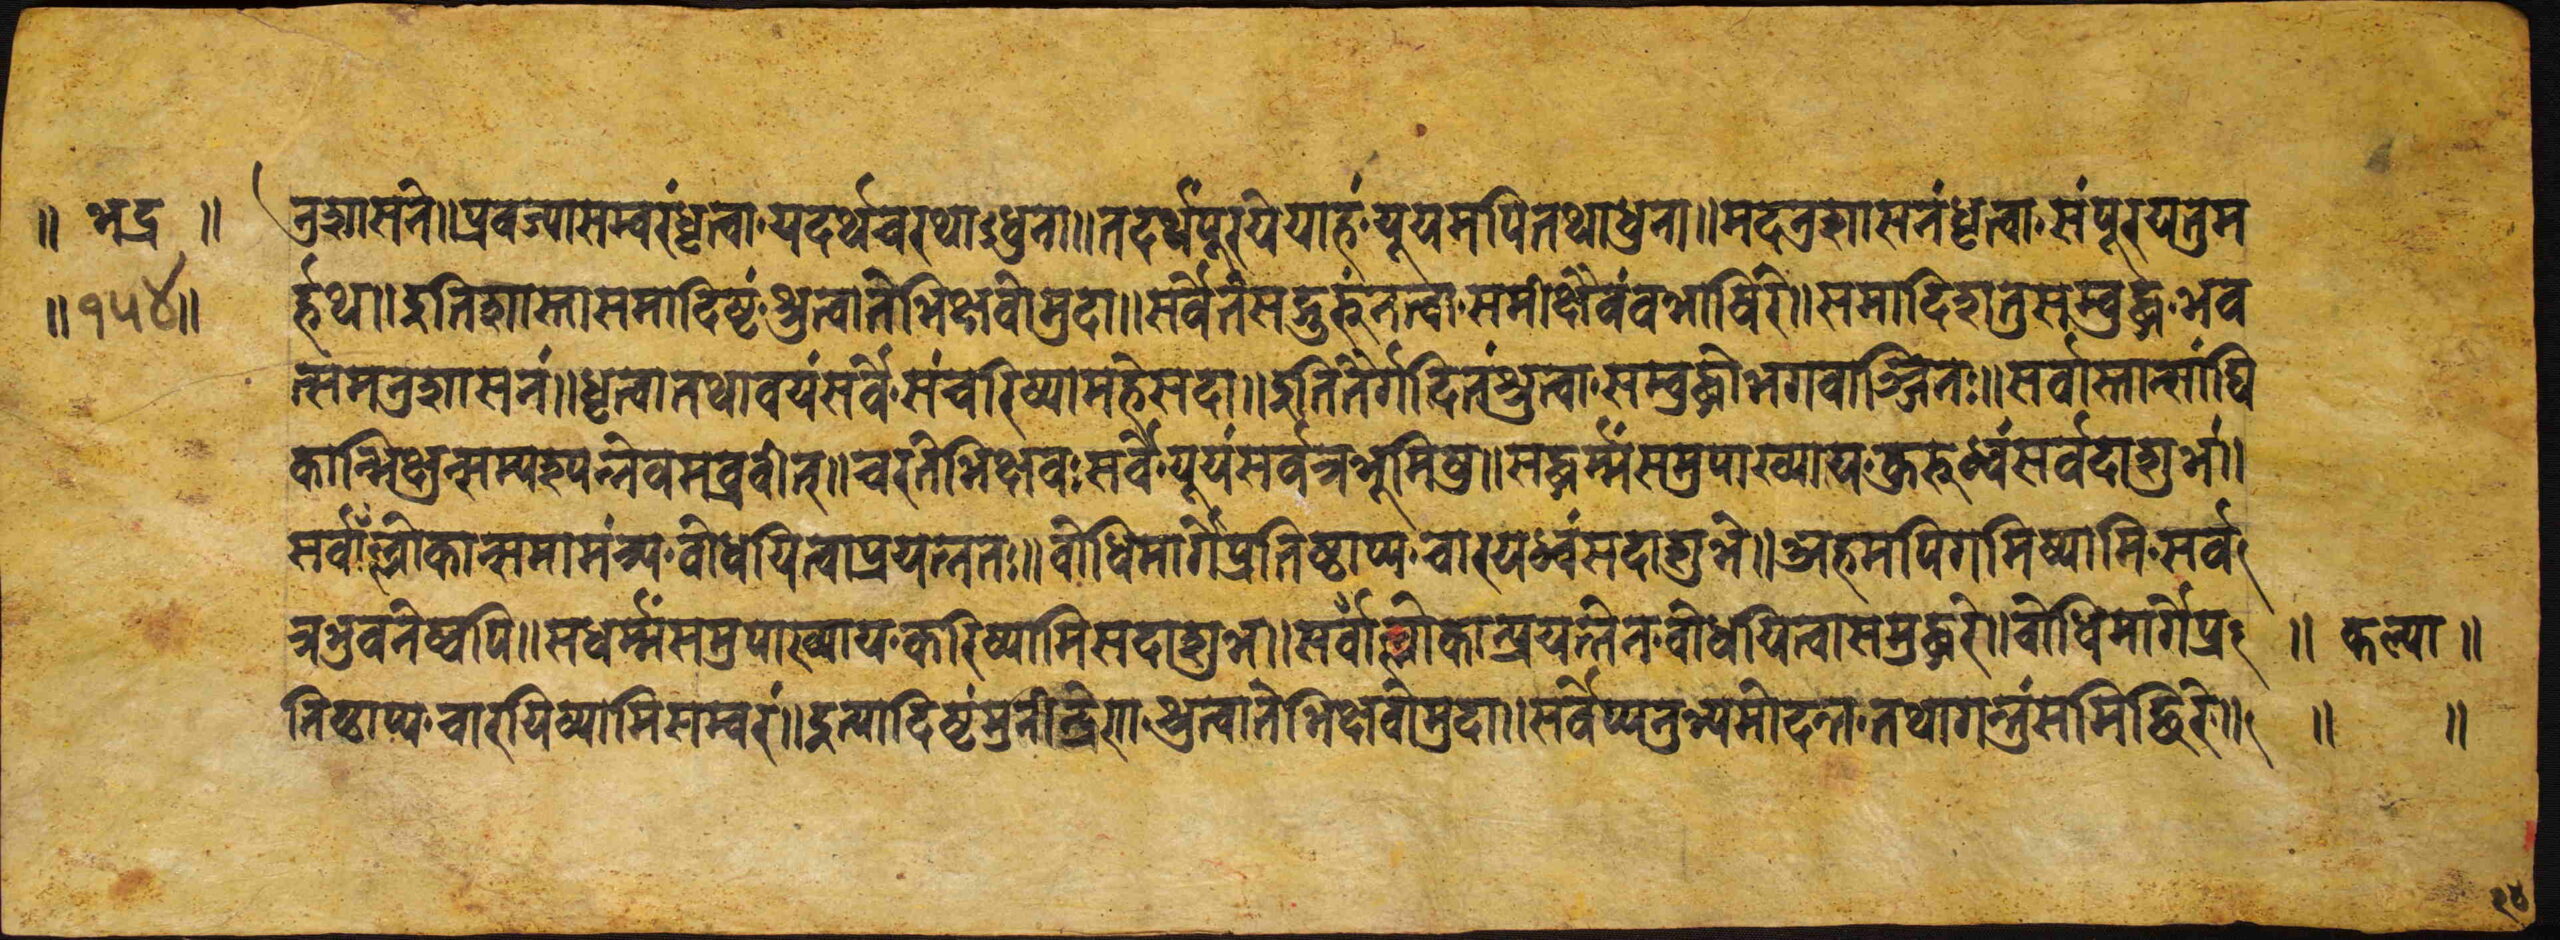 ॥ भद्र ॥ नुशासने॥प्रवज्यासम्वरंधृत्वा॰यदर्थचरथाऽधुना॥तदर्थंपूरयेयाहं॰यूयमपितथाधुना॥मदनुशासनंधृत्वा॰संपूरयतुम
॥१५४॥ र्हथा।इतिशास्तासमादिष्टं॰श्रुत्वातेभिक्षवोमुदा॥सर्वेतंसद्गुरुंनत्वा॰समीक्ष्यैवंवभाषिरे॥समादिशतुसम्वुद्ध॰भव
त्समनुशासनं॥धृत्वातथावयंसर्वे॰संचरिष्यामहेसदा॥इतितैर्गदितंश्रुत्वा॰सम्वुद्धोभगवाञ्जिनः॥सर्वास्तान्सांघि
कान्भिक्षून्सम्पश्यन्नेवमव्रवीत्॥चरतभिक्षवः सर्वे॰यूयंसर्वत्रभूमिषु॥सद्धर्म्मंसमुपाख्याय॰कुरुध्वंसर्वदाशुभां।
सर्वाँल्लोकान्समामंत्र्य॰वोधयित्वाप्रयत्नतः॥वोधिमार्गेप्रतिष्ठाप्य॰चारयध्वंसदाशुभे॥अहमपिगमिष्यामि॰सर्व
त्रभुवनेष्वपि॥सधर्म्मंसमुपाख्याय॰करिष्यामिसदाशुभं॥सर्वाँल्लोकान्प्रयत्नेन॰वोधयित्वासमुद्धरे॥वोधिमार्गेप्र ॥ कल्पा ॥
तिष्ठाप्य॰चारयिष्यामिसम्वरं॥इत्यादिष्टंमुनीन्द्रेण॰श्रुत्वातेभिक्षवोमुदा॥सर्वेप्यनुभ्यमोदन्त॰तथागन्तुंसमिच्छिरे॥ ॥ ॥